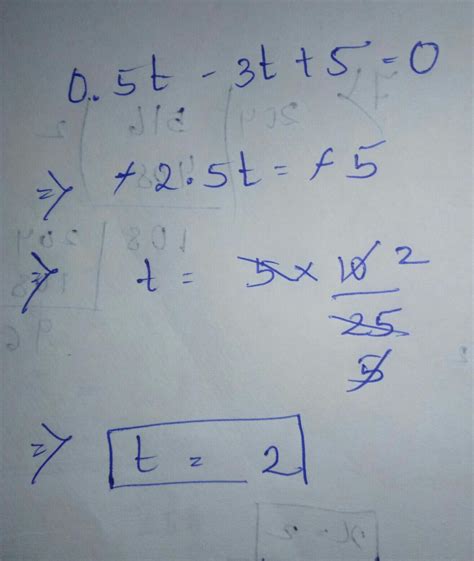 0.5t - 3t + 5 = 0
⇒ +2.5t = +5
⇒ t = 5 × 10 2
25
5
⇒ t = 2